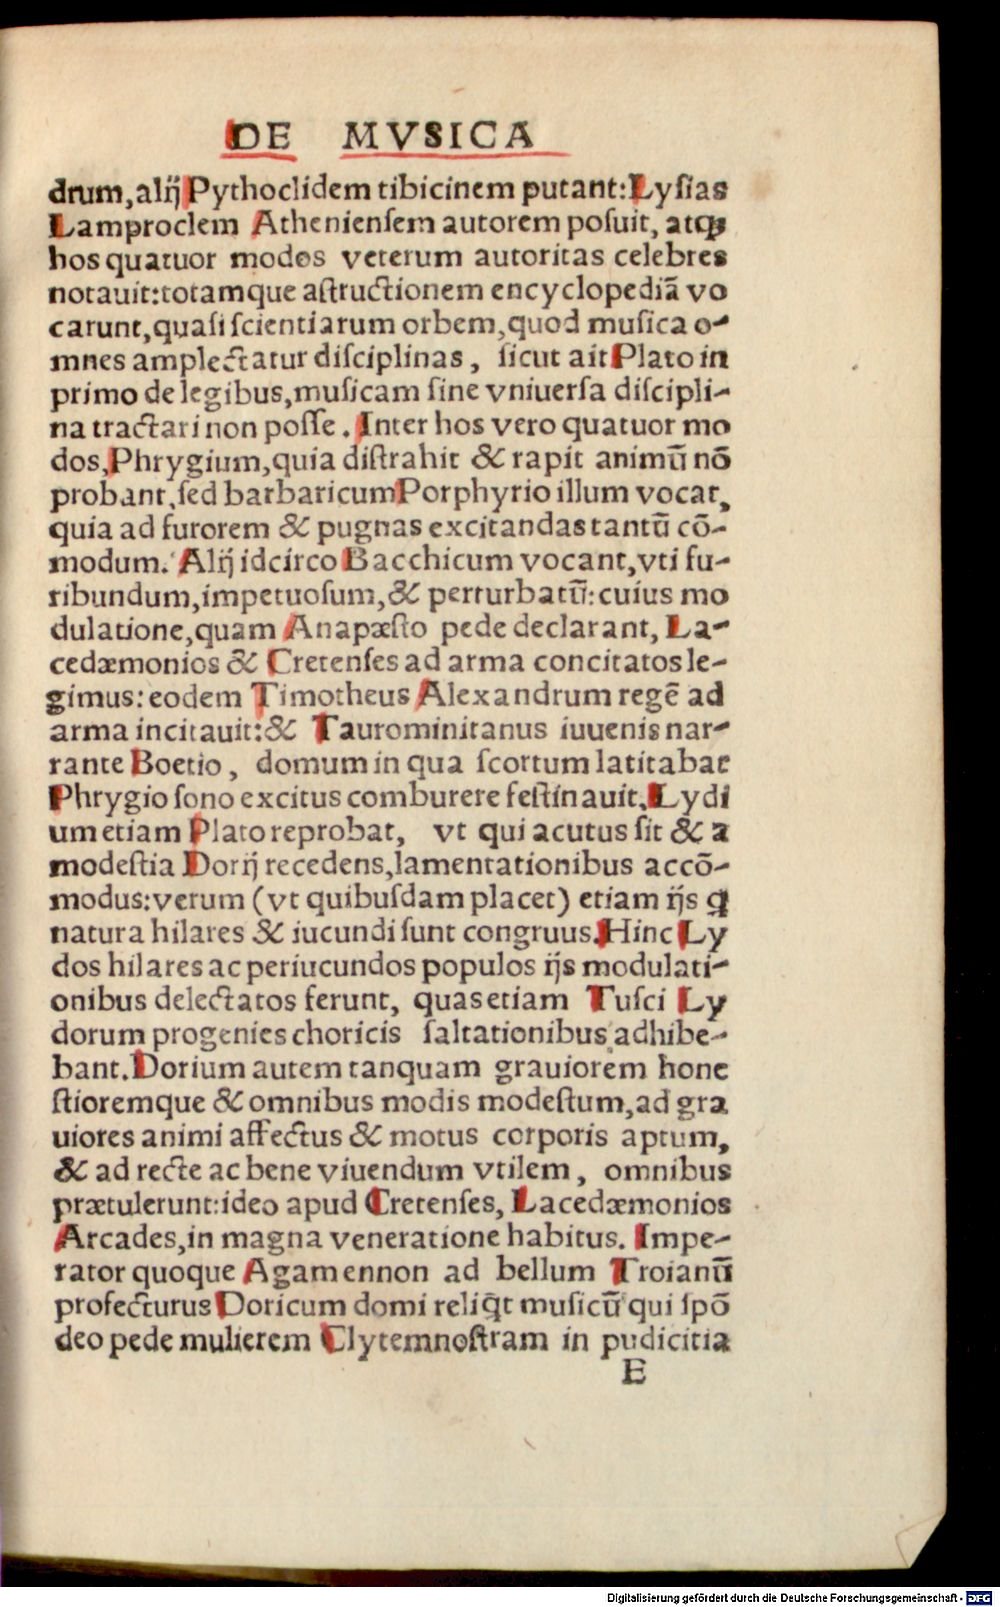 DE MVSICA
drum, alij Pythoclidem tibicinem putant: Lysias
Lamproclem Atheniensem autorem posuit, atqꝫ
hos quatuor modos veterum autoritas celebres
notauit: totamque astructionem encyclopediā vo
carunt, quasi scientiarum orbem, quod musica o-
mnes amplectatur disciplinas, sicut ait Plato in
primo de legibus, musicam sine vniuersa discipli-
na tractari non posse. Inter hos vero quatuor mo
dos, Phrygium, quia distrahit & rapit animū nō
probant, sed barbaricum Porphyrio illum vocat,
quia ad furorem & pugnas excitandas tantū cō-
modum. Alij idcirco Bacchicum vocant, vti fu-
ribundum, impetuosum, & perturbatū: cuius mo
dulatione, quam Anapæsto pede declarant, La-
cedæmonios & Cretenses ad arma concitatos le-
gimus: eodem Timotheus Alexandrum regē ad
arma incitauit: & Taurominitanus iuuenis nar-
rante Boetio, domum in qua scortum latitabat
Phrygio sono excitus comburere festinauit. Lydi
um etiam Plato reprobat, vt qui acutus sit & a
modestia Dorij recedens, lamentationibus accō-
modus: verum (vt quibusdam placet) etiam ijs q
natura hilares & iucundi sunt congruus. Hinc Ly
dos hilares ac periucundos populos ijs modulati-
onibus delectatos ferunt, quas etiam Tusci Ly
dorum progenies choricis saltationibus adhibe-
bant. Dorium autem tanquam grauiorem hone
stioremque & omnibus modis modestum, ad gra
uiores animi affectus & motus corporis aptum,
& ad recte ac bene viuendum vtilem, omnibus
prætulerunt: ideo apud Cretenses, Lacedæmonios
Arcades, in magna veneratione habitus. Impe-
rator quoque Agamennon ad bellum Troianū
profecturus Doricum domi reliq̃t musicū qui spō
deo pede mulierem Clytemnostram in pudicitia
E
Digitalisierung gefördert durch die Deutsche Forschungsgemeinschaft - DFG